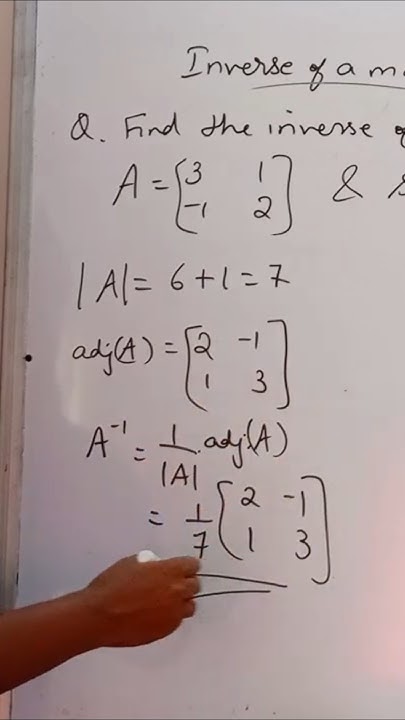 Inverse of a m
Q. Find the inverse
A = [3 1
-1 2] &
|A| = 6 + 1 = 7
adj(A) = [2 -1
1 3]
A⁻¹ = 1/|A| . adj(A)
= 1/7 [2 -1
1 3]